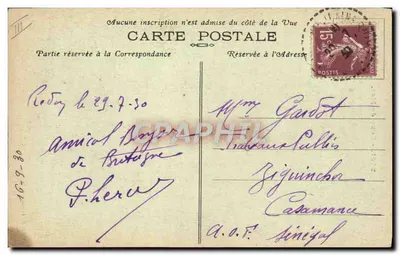 Aucune inscription n'est admise du côté de la Vue
CARTE POSTALE
Partie réservée à la Correspondance
Réservée à l'Adresse
III
15
POSTES
Redon le 29-7-30
Amical Bonjour
de Bretagne
16-9-30
Mr Gardot
Travaux Publics
Ziguinchor
Casamance
A.O.F. Sénégal
CPAPHIL